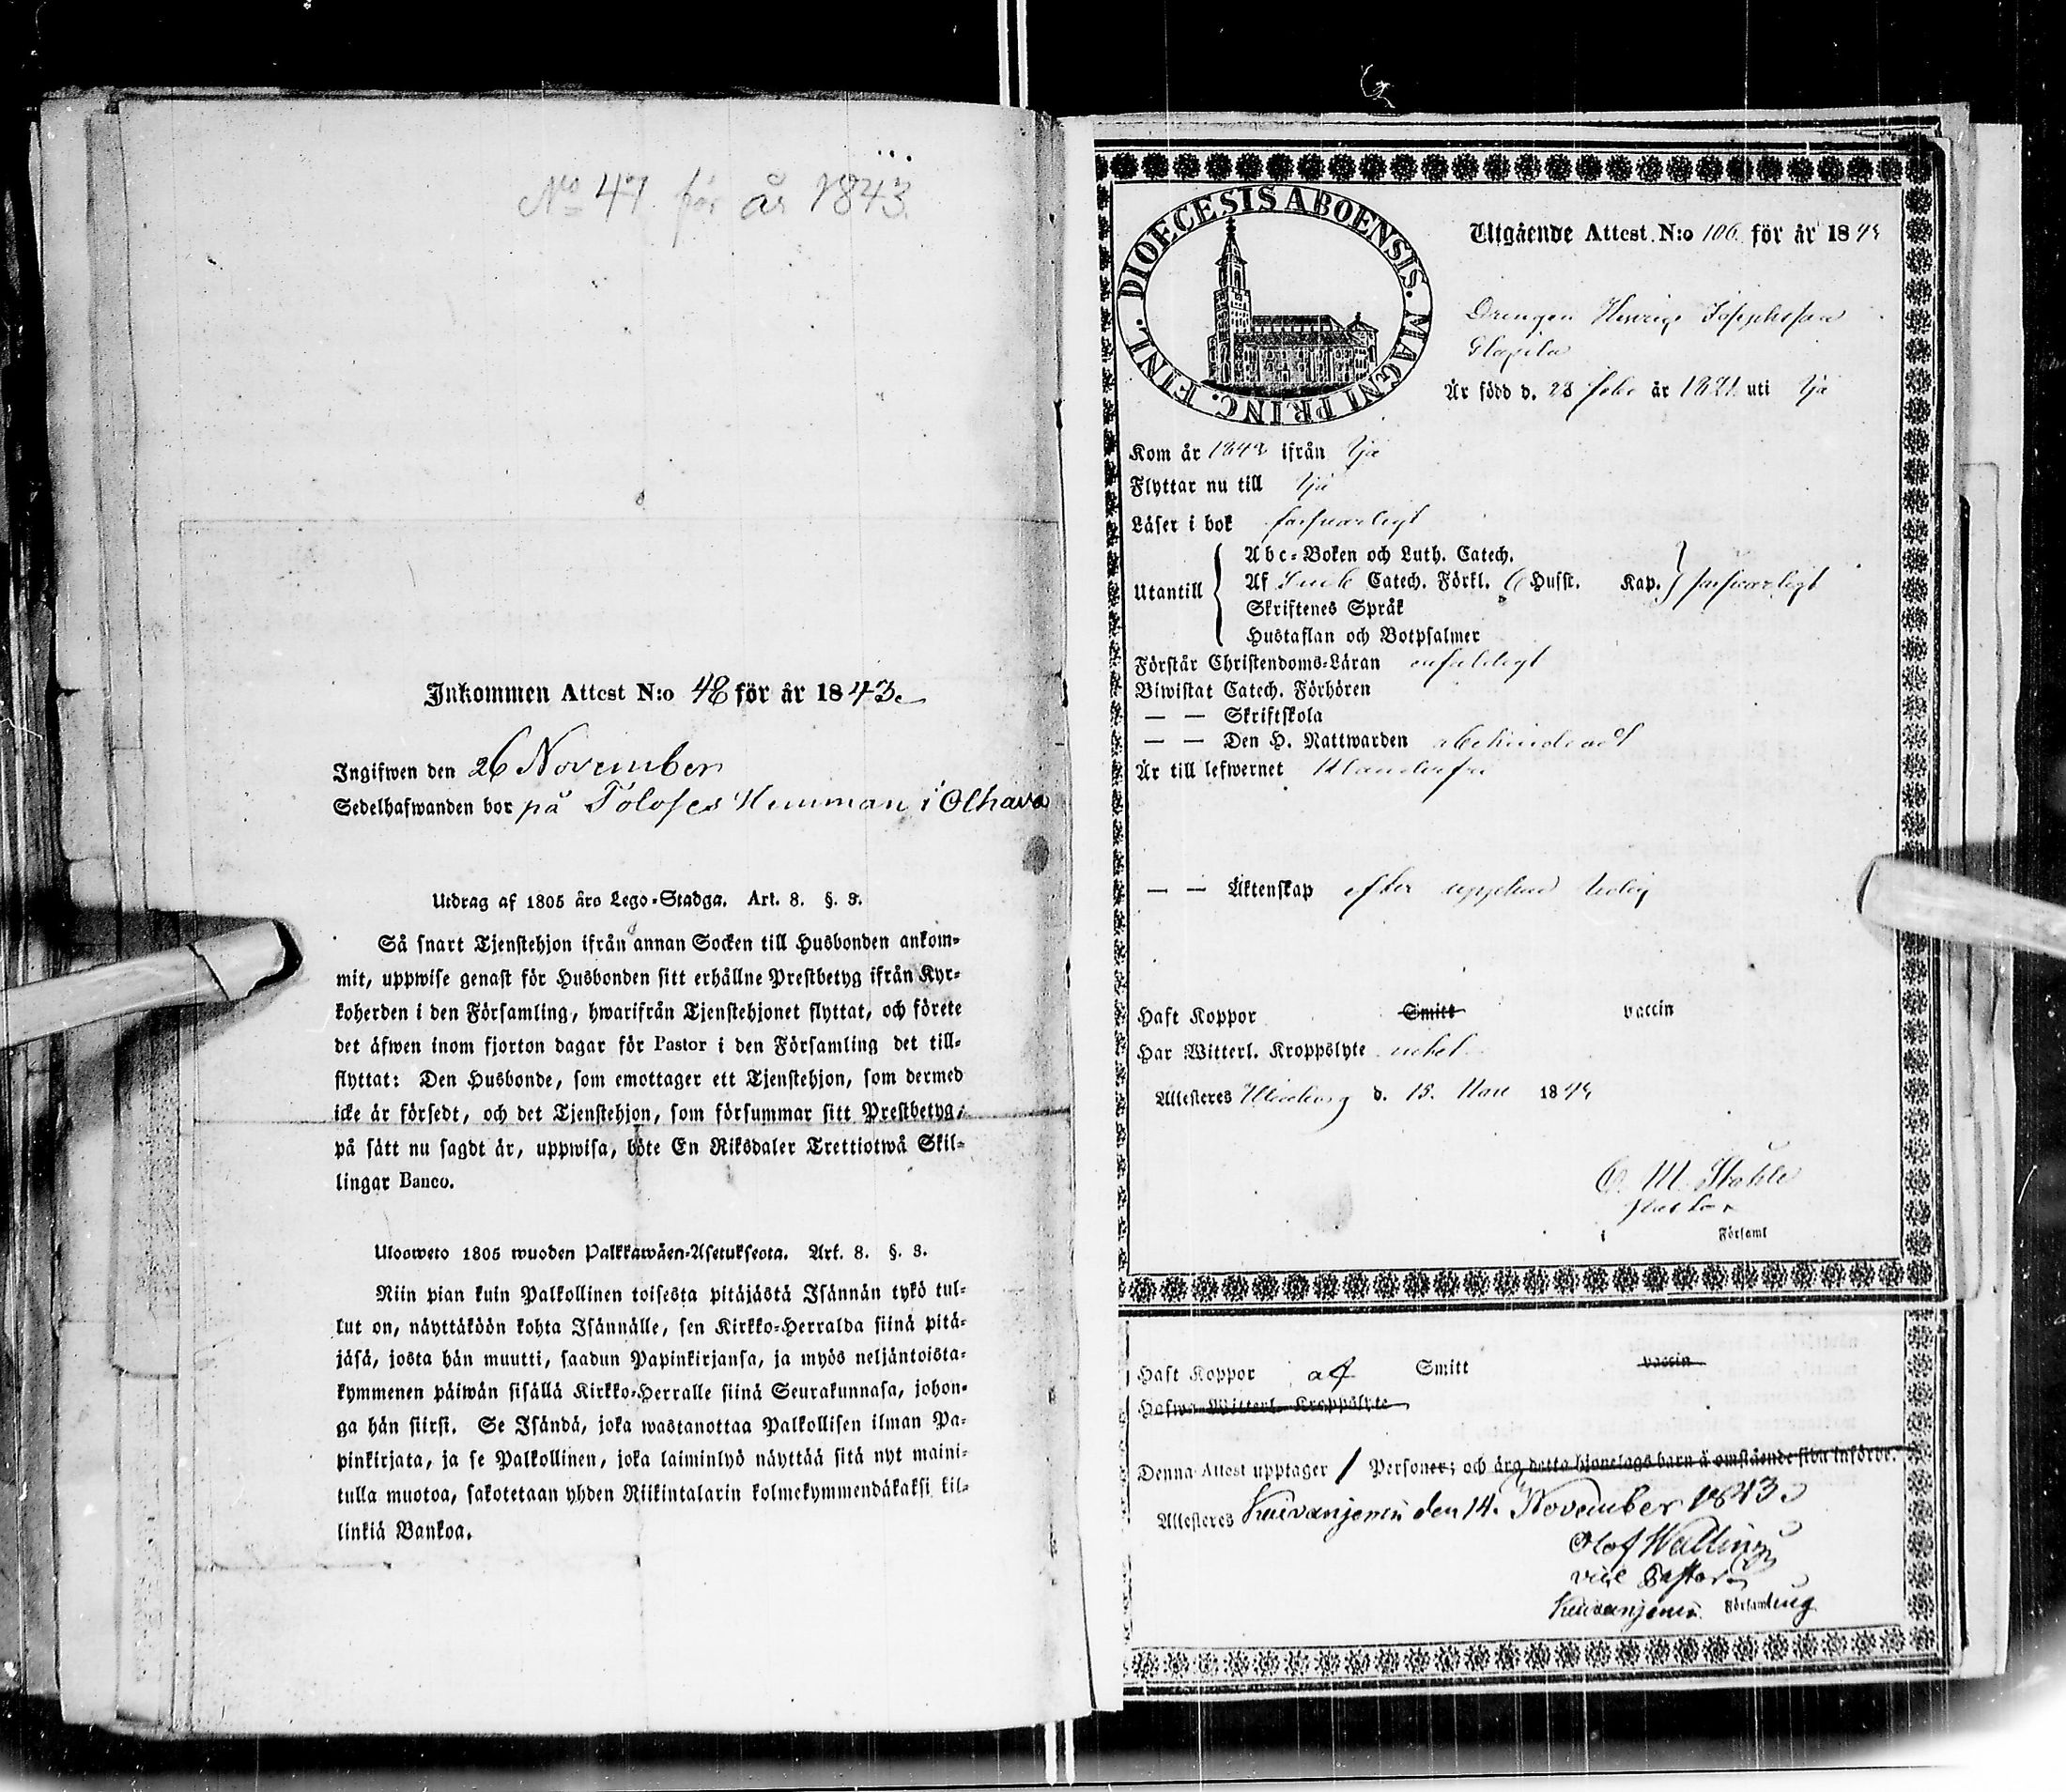 No 47 för år 1843.
Inkommen Attest N:o 48 för år 1843.
Ingifwen den 26 November
Sedelhafwanden bor på Toloses Hemman i Olhava
Utdrag af 1805 års Lego-Stadga. Art. 8. §. 3.
Så snart Tjenstehjon ifrån annan Socken till Husbonden ankom-
mit, uppwise genast för Husbonden sitt erhållne Prestbetyg ifrån Kyr-
koherden i den Församling, hwarifrån Tjenstehjonet flyttat, och förete
det äfwen inom fjorton dagar för Pastor i den Församling det till-
flyttat: Den Husbonde, som emottager ett Tjenstehjon, som dermed
icke är försedt, och det Tjenstehjon, som försummar sitt Prestbetyg,
på sätt nu sagdt är, uppwisa, böte En Riksdaler Trettiotwå Skil-
lingar Banco.
Uloosweto 1805 wuoden Palkkawäen-Asetuksesta. Art. 8. §. 3.
Niin pian kuin Palkollinen toisesta pitäjästä Isännän tykö tul-
lut on, näyttäköön kohta Isännälle, sen Kirkko-Herralda siinä pitä-
jäsä, josta hän muutti, saadun Papinkirjansa, ja myös neljäntoista-
kymmenen päiwän sisällä Kirkko-Herralle siinä Seurakunnasa, johon-
ga hän siirsi. Se Isändä, joka wastanottaa Palkollisen ilman Pa-
pinkirjata, ja se Palkollinen, joka laiminlyö näyttää sitä nyt maini-
tulla muotoa, sakotetaan yhden Riikintalarin kolmekymmendäkaksi kil-
linkiä Bankoa.
DIOECESIS ABOENSIS. MAGNI PRINC. FINL.
Utgående Attest N:o 106. för år 1844
Drengen Henric Josephsson
Är född d. 28 Febr år 1821 uti Ijo
Kom år 1843 ifrån Ijo
Flyttar nu till Ijo
Läser i bok försvarligt
Utantill
Abc-Boken och Luth. Catech.
Af Catech. Förkl. 6 Hufst. Kap. försvarligt
Skriftenes Språk
Hustaflan och Botpsalmer
Förstår Christendoms-Läran enfaldigt
Biwistat Catech. Förhören
— — Skriftskola
— — Den H. Nattwarden obehindradt
Är till lefwernet Klanderfri
— — Äktenskap efter uppehåll ledig
Haft Koppor Smitt vaccin
Har Witterl. Kroppslyte
Attesteres Uleåborg d. 15. 1844
C. M. Ståhle
Pastor
i Församl
Haft Koppor af Smitt vaccin
Hafwa Witterl. Kroppslyte
Denna Attest upptager 1 Personer; och äro detta hjonelags barn å omstående sida införde.
Attesteres Kuivanjemi den 14. November 1843.
Olof Walling
vice Pastor
Kuivanjemi Församling